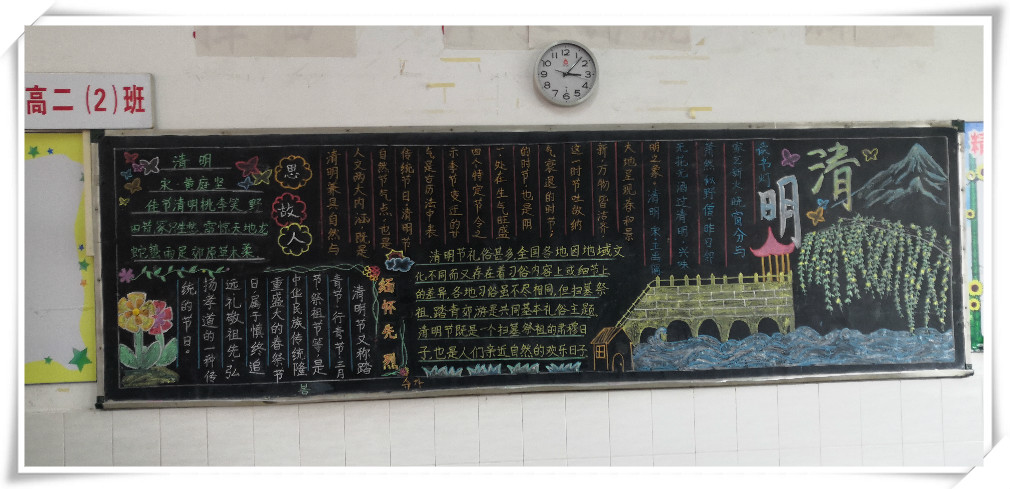 高二(2)班
清明
宋·黄庭坚
佳节清明桃李笑,野
田荒冢
天地龙
蛇蛰 雨足郊原草木柔
思
故
人
清明节又称踏
青节、行青节、三月
节、祭祖节等,是
中华民族传统隆
重盛大的春祭节
日,属于慎终追
远、礼敬祖先、弘
扬孝道的一种传
统的节日。
缅怀先烈
清明节礼俗甚多全国各地因地域文
化不同而又存在着习俗内容上或细节上
的差异,各地习俗虽不尽相同,但扫墓祭
祖、踏青郊游是共同基本礼俗主题
清明节既是一个扫墓祭祖的肃穆日
子也是人们亲近自然的欢乐日子
清明
明之象。清明 宋·王禹偁
无花无酒过清明,兴味
萧然似野僧。昨日邻
家乞新火,晓窗分与
读书灯。
天地呈现春和景
新、万物皆洁齐,
这一时节吐故纳
的时节,也是阴
气衰退的时节,
一,处在生气旺盛
四个特定节令之
示季节变迁的
节是农历法中表
传统节日清明节
自然节气点,也是
人文两大内涵,既是
清明兼具自然与